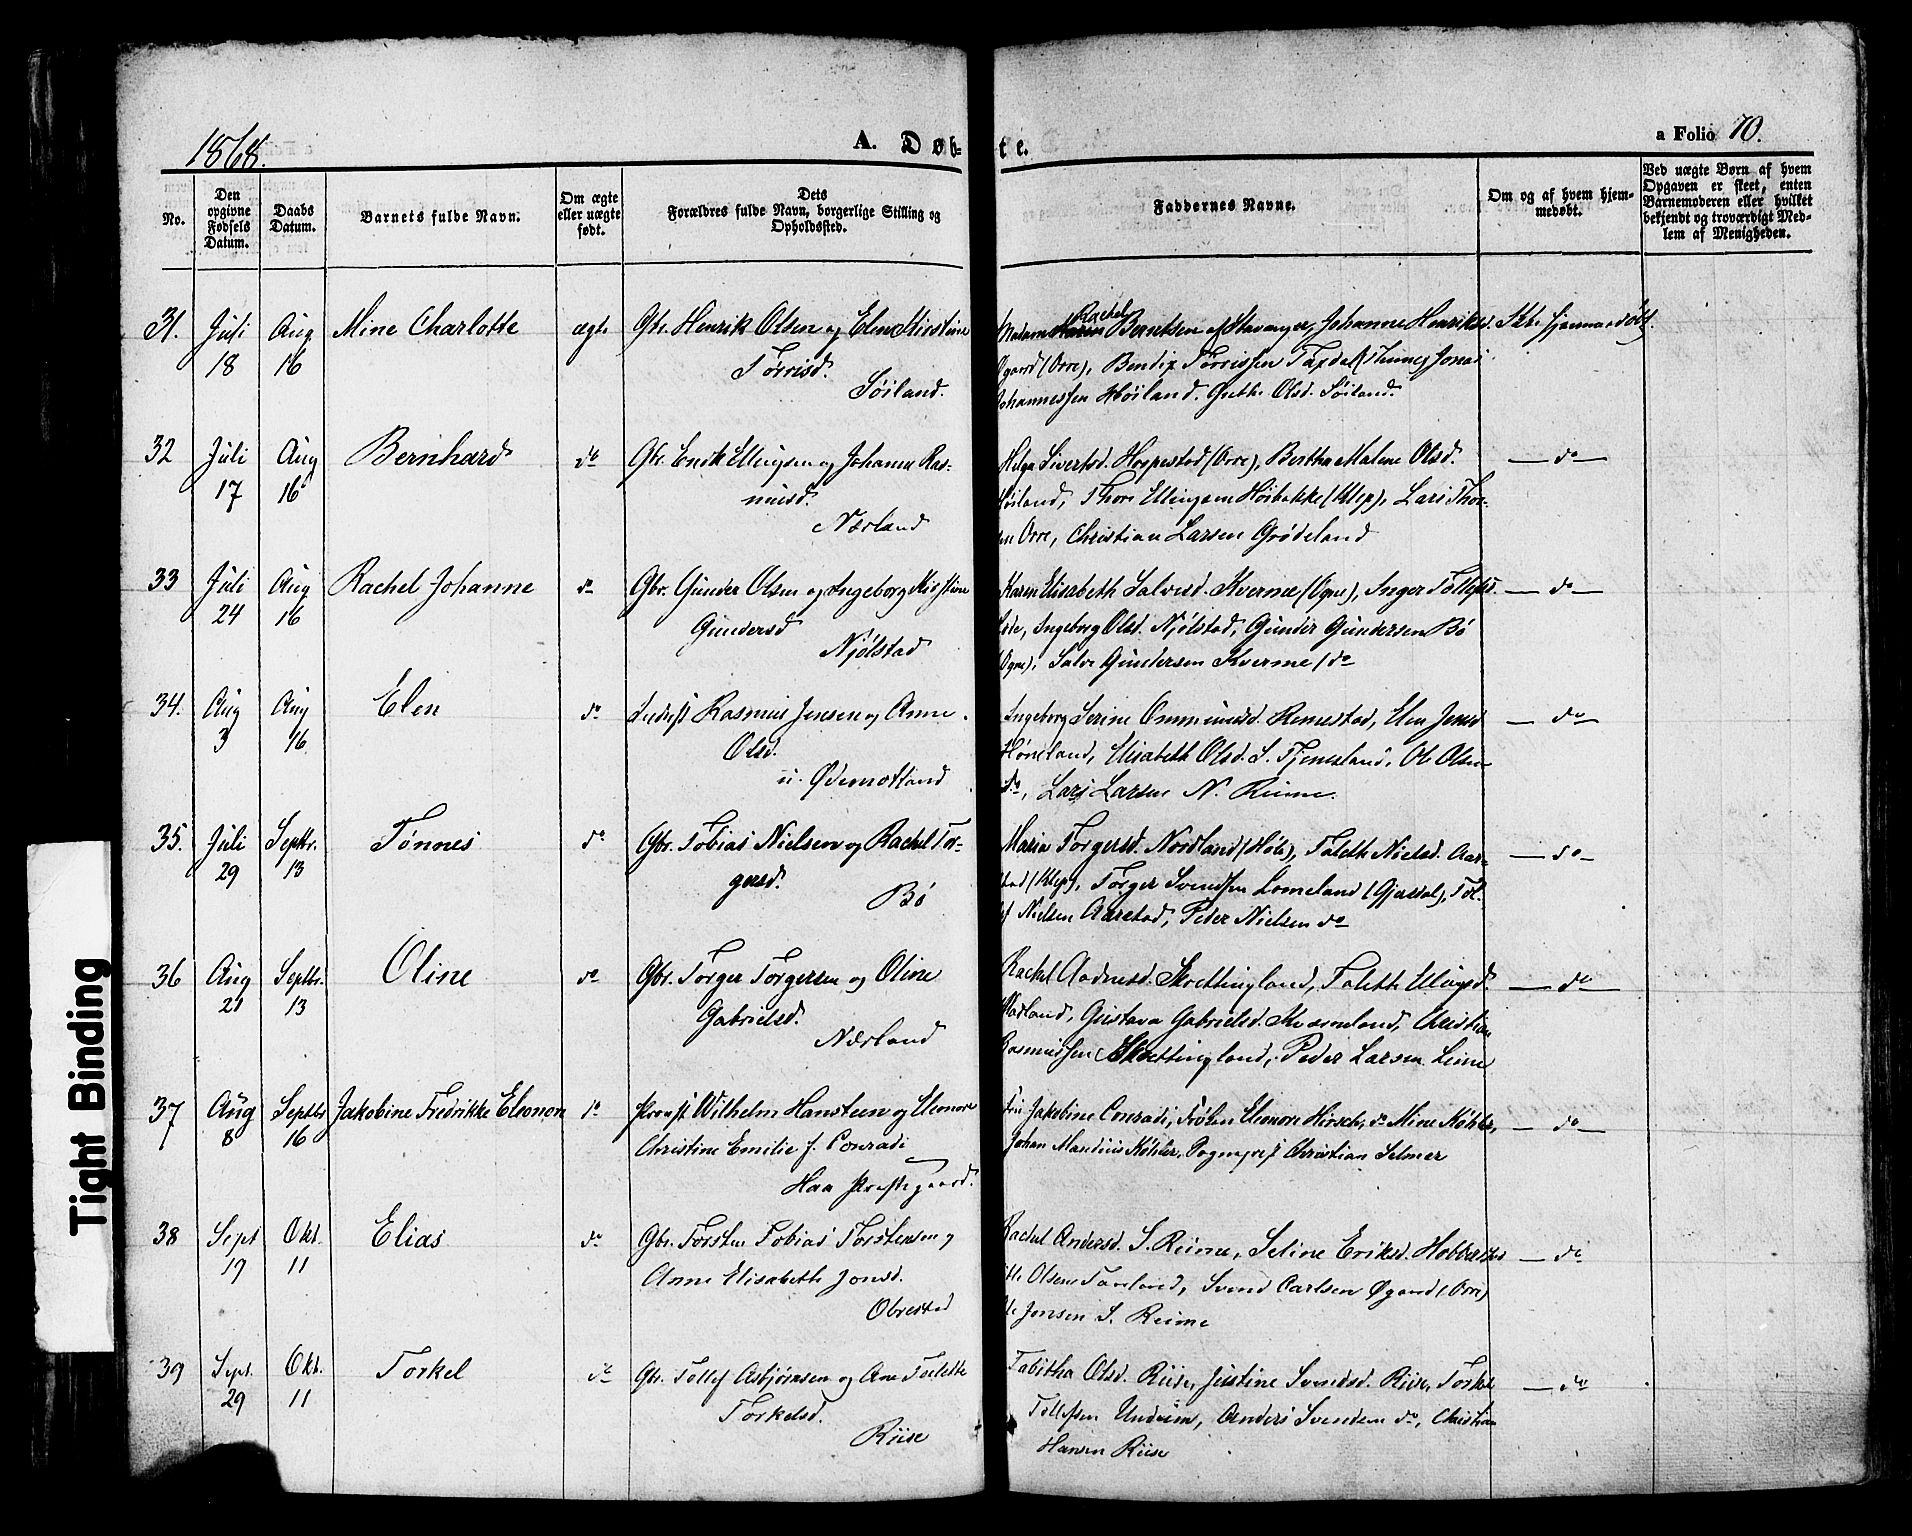 1868.
A. Døb-
te.
a Folio 70.
No.
Den opgivne Fødsels Datum.
Daabs Datum.
Barnets fulde Navn.
Om ægte eller uægte født.
Dets Forældres fulde Navn, borgerlige Stilling og Opholdssted.
Faddernes Navne.
Om og af hvem hjemmedøbt.
Ved uægte Børn af hvem Opgaven er skeet, enten Barnemoderen eller hvilket bekjendt og troværdigt Medlem af Menigheden.
31. Juli 18 Aug 16 Mine Charlotte ægte Gbr. Henrik Olsen og Elen Kirstine
Tørrisd.
Søiland.
Madam Rachel Berntsen af Stavanger, Johanne Henriksd. Ikke hjemmedøbt.
Øgaard (Orre), Bendix Tørrissen Jonas
Johannessen Høiland. Olsd. Søiland.
32 Juli 17 Aug 16 Bernhard do Gbr. Enok Ellingsen og Johanne Ras-
musd.
Nærland
Helga Sivertsd. Horpestad (Orre), Bertha Malene Olsd. do
Høiland, Thore Ellingsen (Klep), Lars Thor-
sen Orre, Christian Larsen Grødeland
33 Juli 24 Aug 16 Rachel Johanne do Gbr. Gunder Olsen og Ingeborg Kirstine
Gundersd
Njølstad
Karen Elisabeth Salvesd. Kverme (Ogne), Inger Tollefsd. do
Ingeborg Olsd. Njølstad, Gunder Gundersen Bø
(Ogne), Salve Gundersen Kverme (do
34. Aug 3 Aug 16 Elen do Inderst Rasmus Jensen og Anne
Olsd.
u. Ødemotland
Ingeborg Serine Ommundsd. Remestad, Elen Jensd do
Høiland, Elisabeth Olsd. S. Tjemsland, Ole Olsen
do, Lars Larsen N. Reime.
35. Juli 29 Septbr. 13 Tønnes do Gbr. Tobias Nielsen og Rachel Tor-
gersd.
Bø
Maria Torgersd. Nordland (Hole), Taleth Nielsd. Aar- do
stad (Klep), Torger Svendsen Lomeland (Gjæsdal), Tol-
lef Nielsen Aarstad, Peder Nielsen do
36 Aug 21 Septbr. 13 Oline do Gbr. Torger Torgersen og Oline
Gabrielsd.
Nærland
Rachel Aadnesd. Skrettingland, Taleth Ellingsd do
Nærland, Gustava Gabrielsd. Kværneland, Christian
Rasmussen Skrettingland, Peder Larsen Lime
37 Aug 8 Septbr 16 Jakobine Fredrikke Eleonore do Provst Wilhelm Hansteen og Eleonore
Christine Emilie f. Conradi
Haa Præstegaard.
Jakobine Conradi, Frøken Eleonore Hirsch, do Mine Køhler, do
Johan Mandius Køhler, Sognepræst Christian Selmer
38 Sept 19 Okt. 11 Elias do Gbr. Torsten Tobias Torstensen og
Anne Elisabeth Jonsd.
Obrestad
Rachel Andersd. S. Reime, Seline Eriksd. Hobberstad do
Olsen Svend Carlsen Øgaard (Orre)
Ole Jensen S. Reime
39 Sept. 29 Okt. 11 Torkel do Gbr. Tollef Asbjørnsen og Ane Taletta
Torkelsd.
Riise
Tabitha Olsd. Riise, Justine Svendsd. Riise, Torkel do
Tollefsen Undeim, Anders Svendsen do, Christian
Hansen Riise
Tight Binding